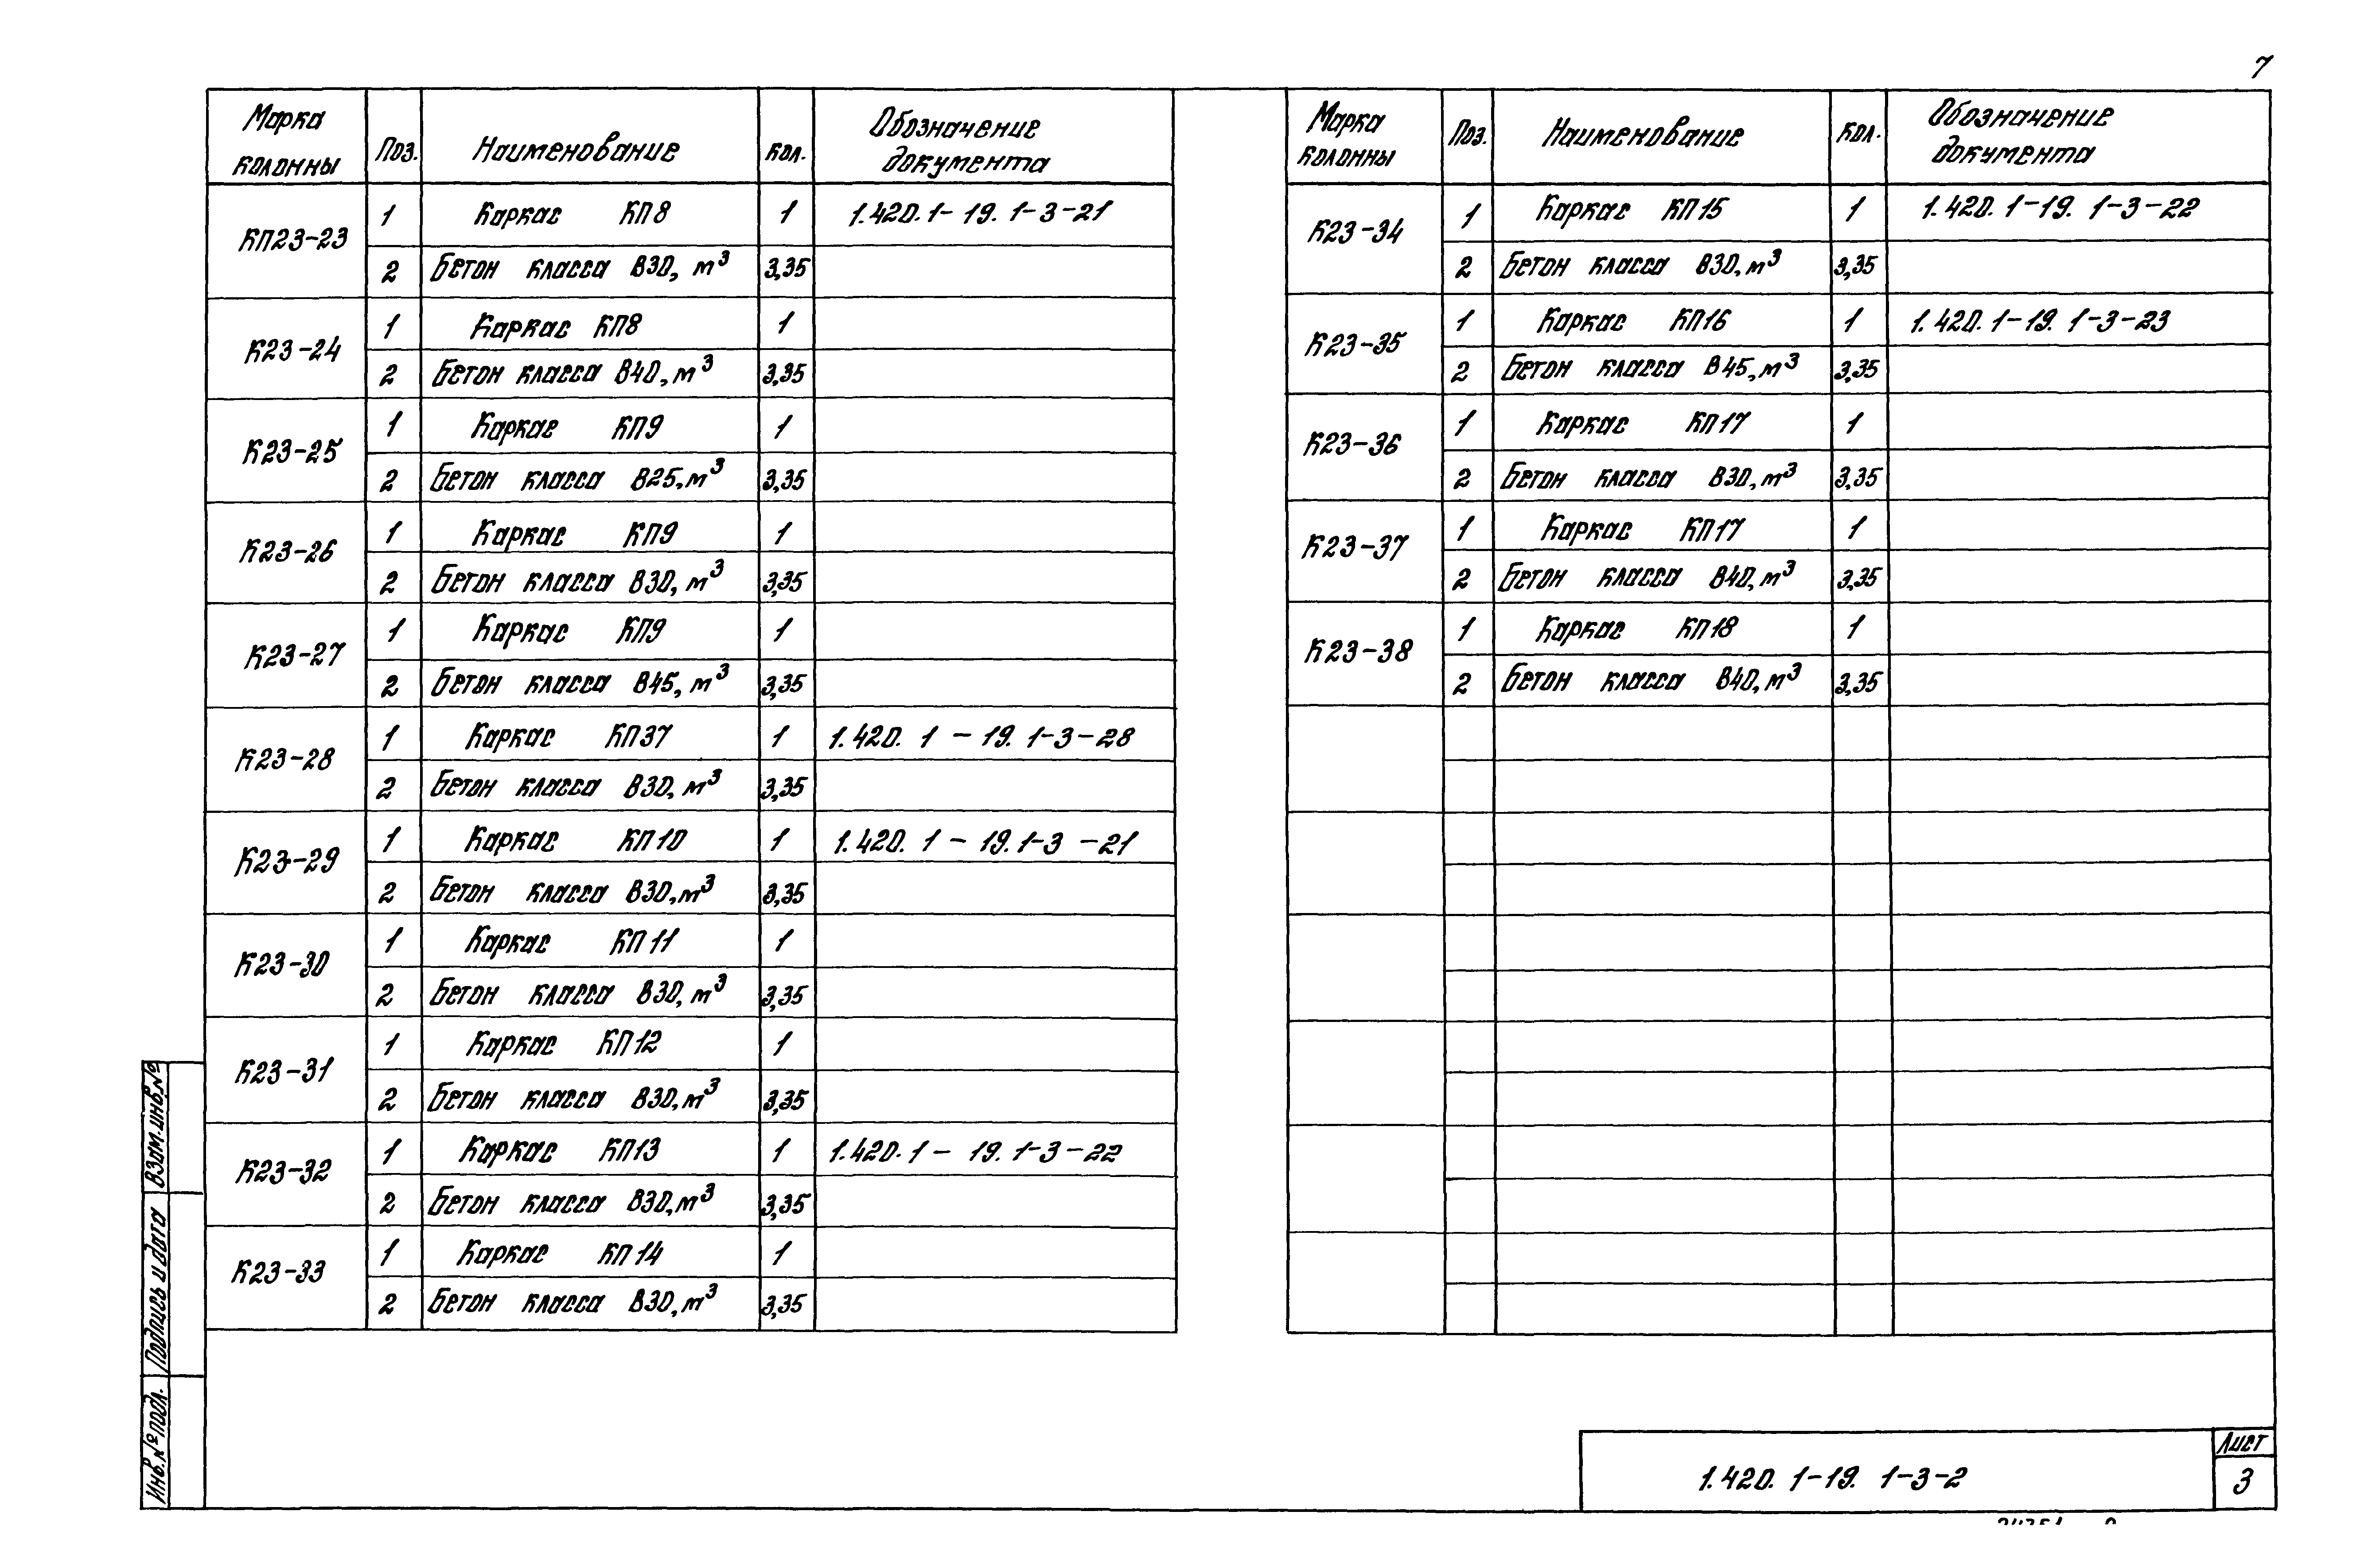 7
Марка колонны Поз. Наименование Кол. Обозначение документа
КП23-23 1 Каркас КП8 1 1.420.1-19.1-3-21
2 Бетон класса В30, м³ 3,35
К23-24 1 Каркас КП8 1
2 Бетон класса В40, м³ 3,35
К23-25 1 Каркас КП9 1
2 Бетон класса В25, м³ 3,35
К23-26 1 Каркас КП9 1
2 Бетон класса В30, м³ 3,35
К23-27 1 Каркас КП9 1
2 Бетон класса В45, м³ 3,35
К23-28 1 Каркас КП37 1 1.420.1-19.1-3-28
2 Бетон класса В30, м³ 3,35
К23-29 1 Каркас КП10 1 1.420.1-19.1-3-21
2 Бетон класса В30, м³ 3,35
К23-30 1 Каркас КП11 1
2 Бетон класса В30, м³ 3,35
К23-31 1 Каркас КП12 1
2 Бетон класса В30, м³ 3,35
К23-32 1 Каркас КП13 1 1.420.1-19.1-3-22
2 Бетон класса В30, м³ 3,35
К23-33 1 Каркас КП14 1
2 Бетон класса В30, м³ 3,35
Марка колонны Поз. Наименование Кол. Обозначение документа
К23-34 1 Каркас КП15 1 1.420.1-19.1-3-22
2 Бетон класса В30, м³ 3,35
К23-35 1 Каркас КП16 1 1.420.1-19.1-3-23
2 Бетон класса В45, м³ 3,35
К23-36 1 Каркас КП17 1
2 Бетон класса В30, м³ 3,35
К23-37 1 Каркас КП17 1
2 Бетон класса В40, м³ 3,35
К23-38 1 Каркас КП18 1
2 Бетон класса В40, м³ 3,35
Взам.инв.№
Подпись и дата
Инв.№подл.
1.420.1-19.1-3-2
Лист
3